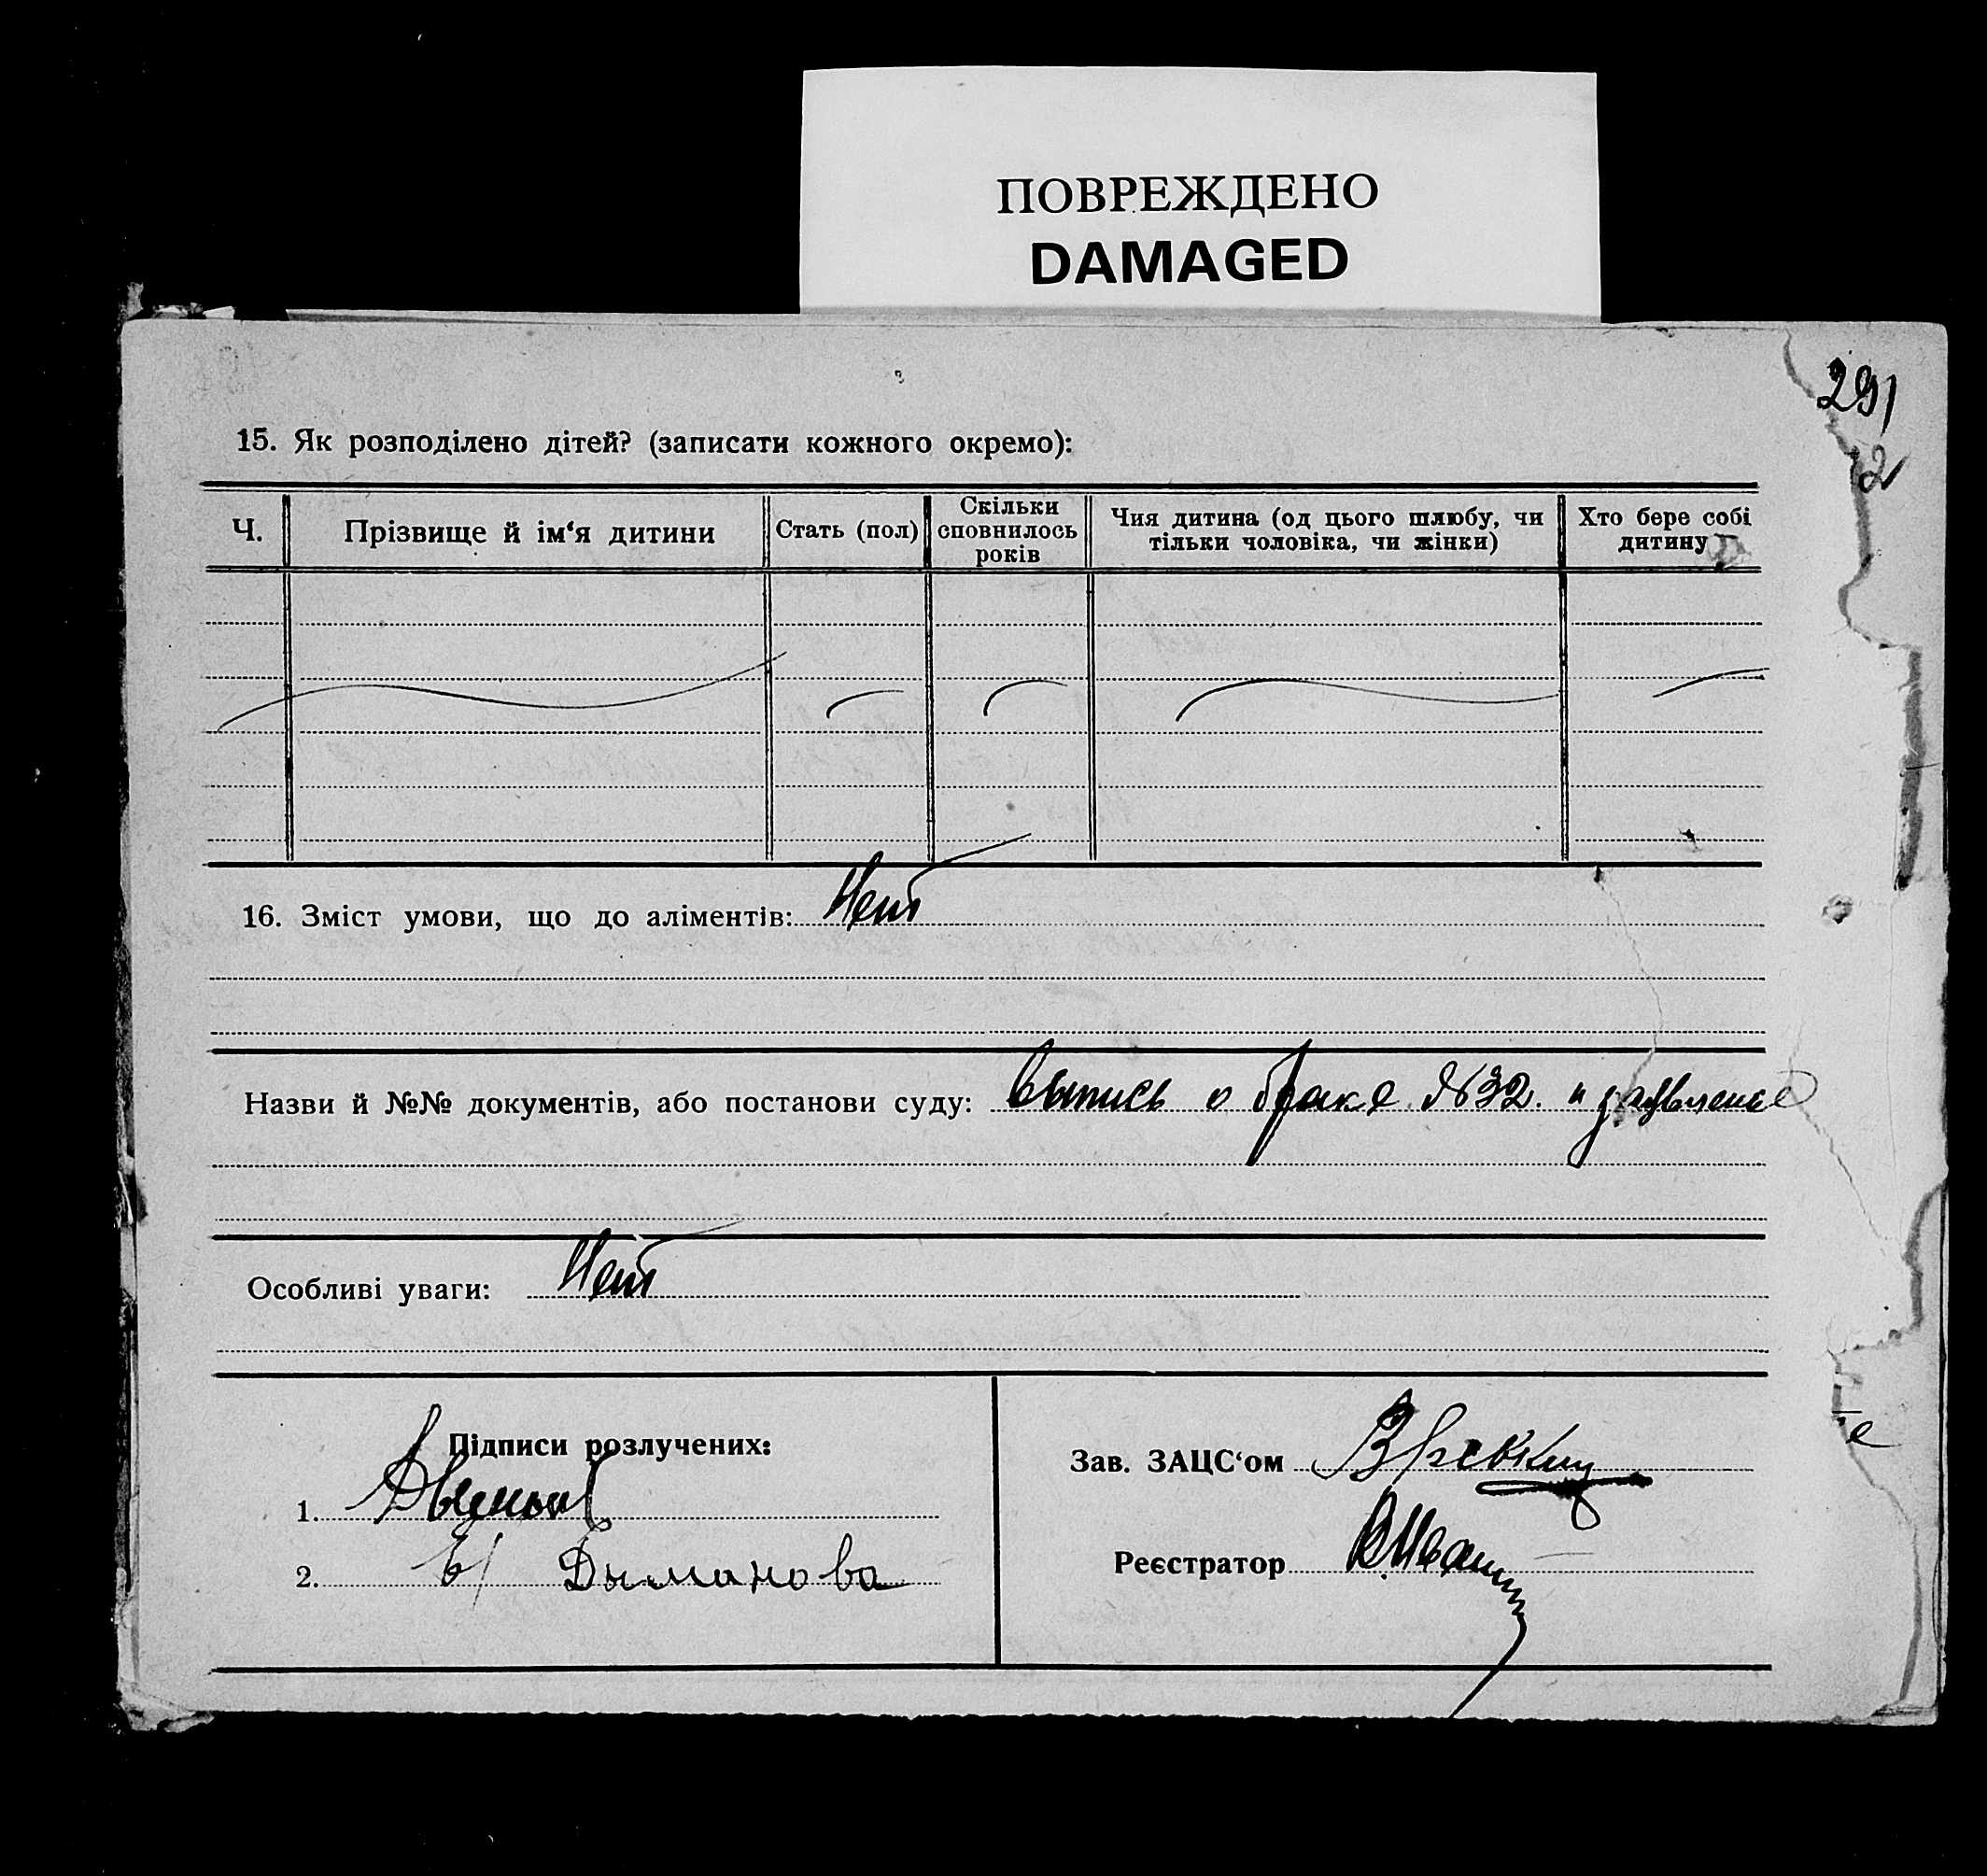 ПОВРЕЖДЕНО
DAMAGED
291
2
15. Як розподілено дітей? (записати кожного окремо):
Ч.
Прізвище й ім‘я дитини
Стать (пол)
Скільки сповнилось років
Чия дитина (од цього шлюбу, чи тільки чоловіка, чи жінки)
Хто бере собі дитину
16. Зміст умови, що до аліментів: Нет
Назви й №№ документів, або постанови суду: Выпись о браке №32. и заявление
Особливі уваги: Нет
Підписи розлучених:
1.
2. Дыманова
Зав. ЗАЦС‘ом
Реєстратор